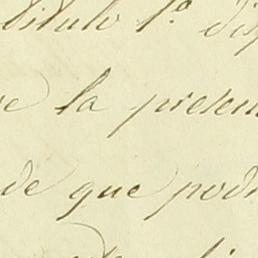 titulo 1.º dis
e la presen
de que podr